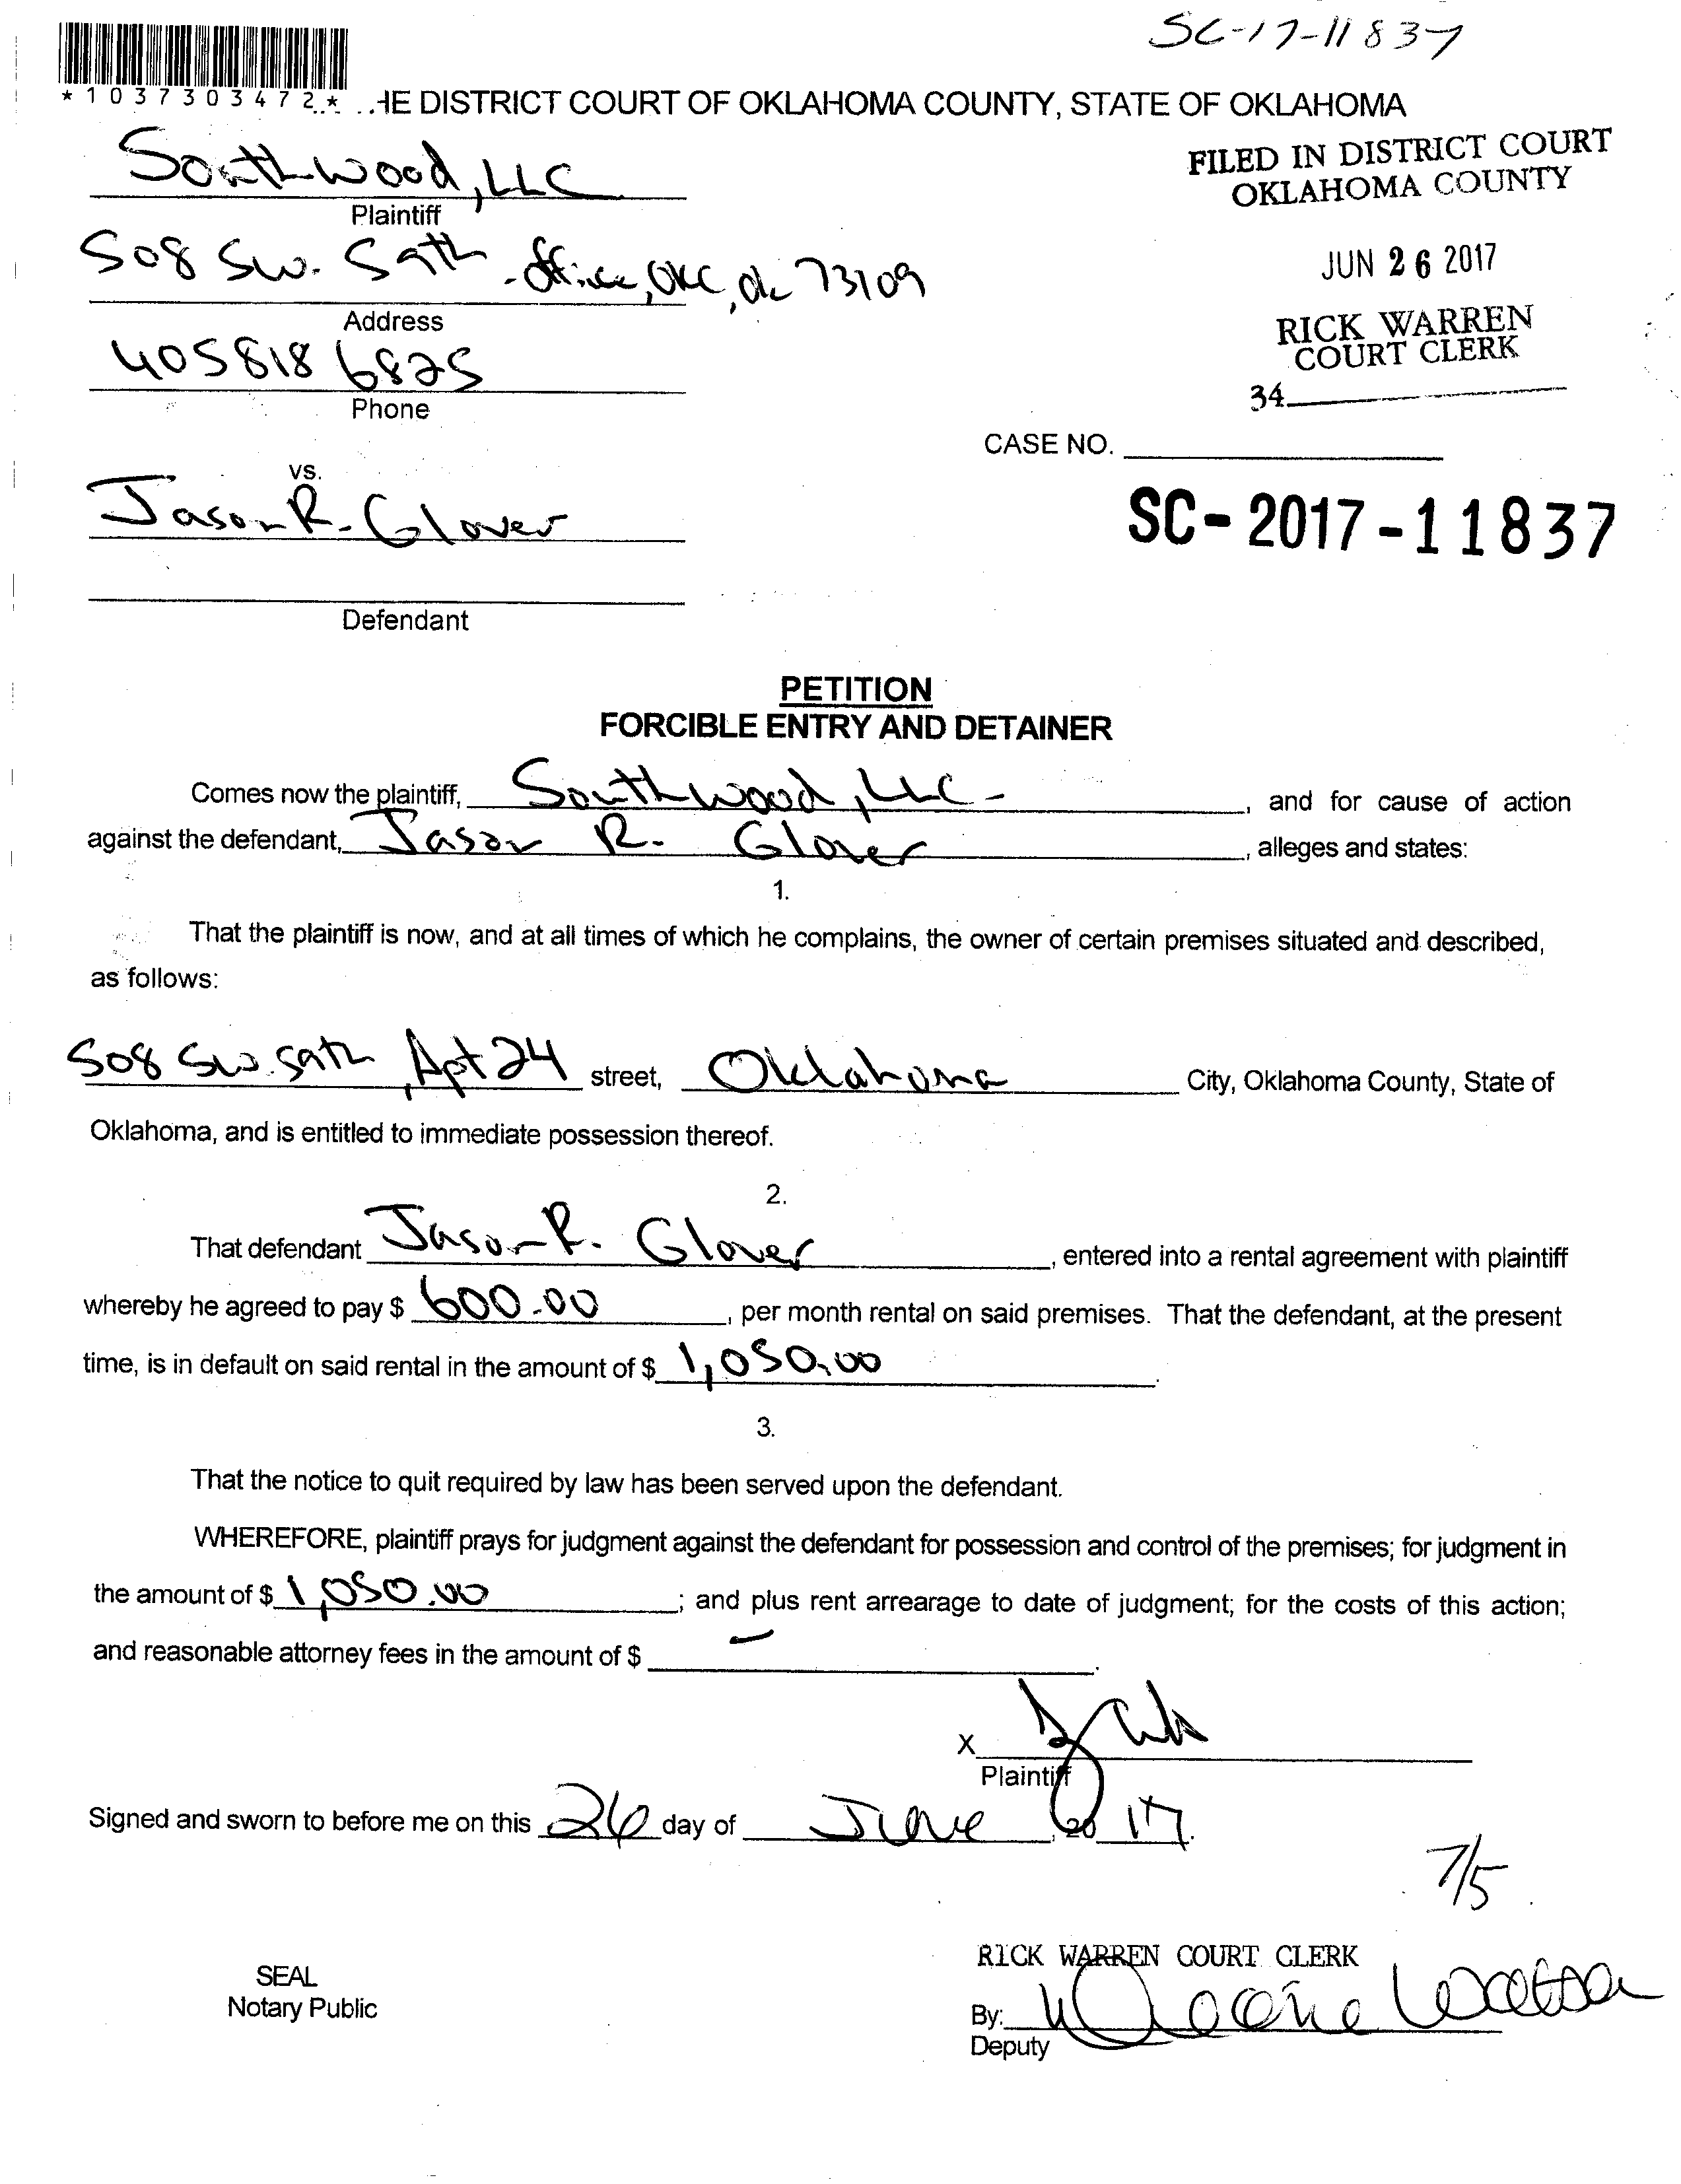 SC-17-11837
*1037303472* ..HE DISTRICT COURT OF OKLAHOMA COUNTY, STATE OF OKLAHOMA
Southwood, LLC
Plaintiff
FILED IN DISTRICT COURT
OKLAHOMA COUNTY
508 SW. 59th - Office, OKC, OK 73109
Address
JUN 26 2017
405 818 6825
Phone
RICK WARREN
COURT CLERK
34
CASE NO.
vs.
Jason R. Glover
SC-2017-11837
Defendant
PETITION
FORCIBLE ENTRY AND DETAINER
Comes now the plaintiff, Southwood, LLC-, and for cause of action
against the defendant, Jason R. Glover, alleges and states:
1.
That the plaintiff is now, and at all times of which he complains, the owner of certain premises situated and described,
as follows:
508 SW. 59th, Apt 24 street, Oklahoma City, Oklahoma County, State of
Oklahoma, and is entitled to immediate possession thereof.
2.
That defendant Jason R. Glover, entered into a rental agreement with plaintiff
whereby he agreed to pay $ 600.00, per month rental on said premises. That the defendant, at the present
time, is in default on said rental in the amount of $ 1,050.00.
3.
That the notice to quit required by law has been served upon the defendant.
WHEREFORE, plaintiff prays for judgment against the defendant for possession and control of the premises; for judgment in
the amount of $ 1,050.00; and plus rent arrearage to date of judgment; for the costs of this action;
and reasonable attorney fees in the amount of $ -.
X
Plaintiff
Signed and sworn to before me on this 26 day of June, 20 17.
7/5
RICK WARREN COURT CLERK
SEAL
Notary Public
By:
Deputy